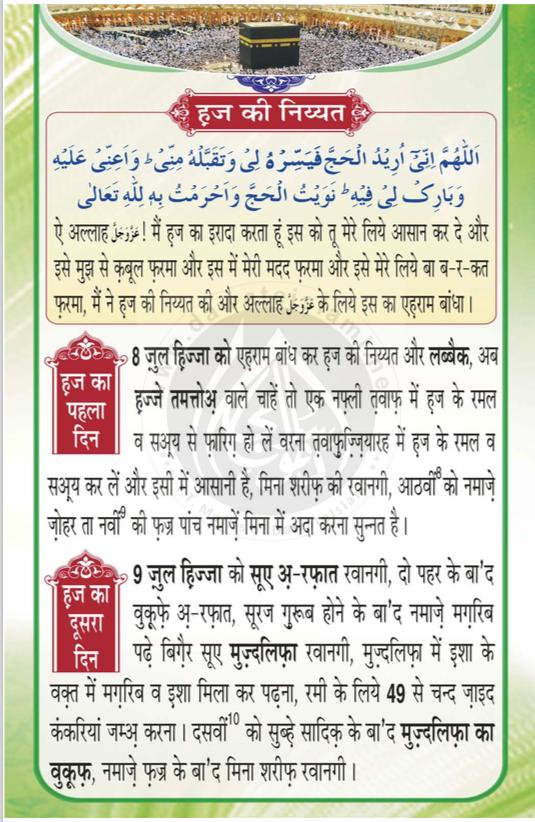 हज की निय्यत
اَللّٰهُمَّ اِنِّیْۤ اُرِیْدُ الْحَجَّ فَیَسِّرْهُ لِیْ وَتَقَبَّلْهُ مِنِّیْ ؕ وَاَعِنِّیْ عَلَیْهِ
وَبَارِکْ لِیْ فِیْهِ ؕ نَوَیْتُ الْحَجَّ وَاَحْرَمْتُ بِهٖ لِلّٰهِ تَعَالٰی
ऐ अल्लाह عَزَّوَجَلَّ ! मैं हज का इरादा करता हूं इस को तू मेरे लिये आसान कर दे और
इसे मुझ से क़बूल फ़रमा और इस में मेरी मदद फ़रमा और इसे मेरे लिये बा ब-र-कत
फ़रमा, मैं ने हज की निय्यत की और अल्लाह عَزَّوَجَلَّ के लिये इस का एहराम बांधा।
हज का
पहला
दिन
8 ज़ुल हिज्जा को एहराम बांध कर हज की निय्यत और लब्बैक, अब
हज्जे तमत्तोअ़ वाले चाहें तो एक नफ़्ली त़वाफ़ में हज के रमल
व सअ़्य से फ़ारिग़ हो लें वरना त़वाफ़ुज़्ज़ियारह में हज के रमल व
सअ़्य कर लें और इसी में आसानी है, मिना शरीफ़ की रवानगी, आठवीं⁸ को नमाज़े
ज़ोहर ता नवीं⁹ की फ़ज्र पांच नमाज़ें मिना में अदा करना सुन्नत है।
हज का
दूसरा
दिन
9 ज़ुल हिज्जा को सूए अ़-रफ़ात रवानगी, दो पहर के बा'द
वुक़ूफ़े अ़-रफ़ात, सूरज ग़ुरूब होने के बा'द नमाज़े मग़रिब
पढ़े बिग़ैर सूए मुज़्दलिफ़ा रवानगी, मुज़्दलिफ़ा में इशा के
वक़्त में मग़रिब व इशा मिला कर पढ़ना, रमी के लिये 49 से चन्द ज़ाइद
कंकरियां जम्अ़ करना। दसवीं¹⁰ को सुब्हे सादिक़ के बा'द मुज़्दलिफ़ा का
वुक़ूफ़, नमाज़े फ़ज्र के बा'द मिना शरीफ़ रवानगी।